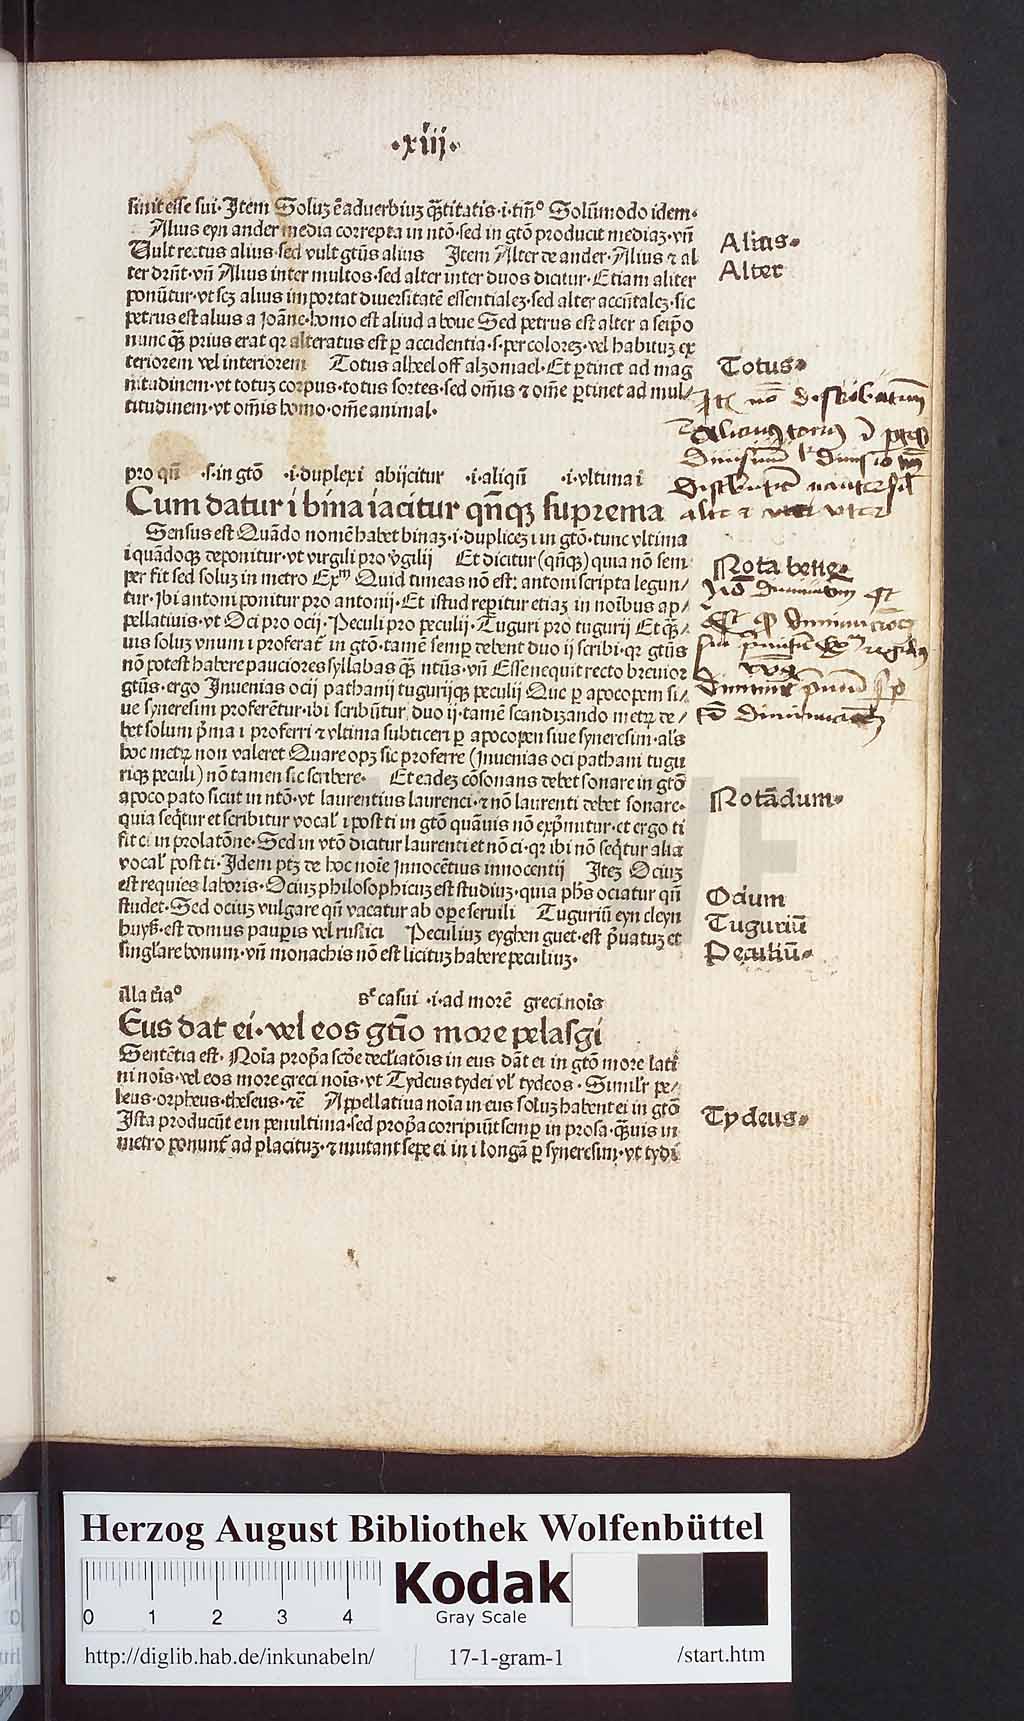 ·xiij·
sinit esse sui·Item Soluʒ ē aduerbiuʒ q̄ʒtitatis·i·tm̄º Solūmodo idem·
Alius eyn ander media correpta in ntō·sed in gtō producit mediaʒ·vn̄
Uult rectus alius·sed vult gtūs alius Item Alter de ander·Alius ⁊ al
ter drn̄t·vn̄ Alius inter multos·sed alter inter duos dicitur·Etiam aliter
ponūtur·vt scʒ alius importat diuersitatē essentialeʒ·sed alter accn̄taleʒ·sic
petrus est alius a ioāne·homo est aliud a boue Sed petrus est alter a seip̄o
nunc q̄ʒ prius erat qr alteratus est ꝑ accidentia·s·per coloreʒ·vel habituʒ ex
teriorem vel interiorem Totus alheel off alʒomael·Et ꝑtinet ad mag
nitudinem·vt totuʒ corpus·totus sortes·sed om̄is ⁊ om̄e ꝑtinet ad mul/
titudinem·vt om̄is homo·om̄e animal·
Alius·
Alter
Totus·
pro qn̄ ·s·in gtō ·i·duplex i abijcitur ·i·aliqn̄ ·i·vltima i
Cum datur i bina iacitur qn̄qʒ suprema
Sensus est Quādo nomē habet binaʒ·i·dupliceʒ i in gtō·tunc vltima
i quādoqʒ deponitur·vt virgili pro v̓gilij Et dicitur (qn̄qʒ) quia nō sem
per fit sed soluʒ in metro Exᵐ Quid timeas nō est: antoni scripta legun/
tur·Ibi antoni ponitur pro antonij·Et istud reꝑitur etiaʒ in noībus ap/
pellatiuis·vt Oci pro ocij·Peculi pro peculij·Tuguri pro tugurij Et q̄ʒ/
uis soluʒ vnum i proferat̄ in gtō·tamē semꝑ debent duo ij scribi·qr gtūs
nō potest habere pauciores syllabas q̄ʒ ntūs·vn̄ Esse nequit recto breuior
gtūs·ergo Inuenias ocij pathanij tugurijqʒ peculij Que ꝑ apocopem si/
ue syneresim proferētur·ibi scribūtur duo ij·tamē scandizando metꝝ de/
bet solum p̄ma i proferri ⁊ vltima subticeri ꝑ apocopen siue syneresim·al̓s
hoc metꝝ non valeret Quare opʒ sic proferre (Inuenias oci pathani tugu
riqʒ peculi) nō tamen sic scribere· Et eadeʒ cōsonans debet sonare in gtō
apocopato sicut in ntō·vt laurentius laurenci·⁊ nō laurenti debet sonare·
quia seq̄tur et scribitur vocal̓ i post ti in gtō quāuis nō exp̄mitur·et ergo ti
fit ci in prolatōne·Sed in vtō dicitur laurenti et nō ci·qr ibi nō seq̄tur alia
vocal̓ post ti·Idem ptʒ de hoc noīe innocētius innocentij Iteʒ Ociuʒ
est requies laboris·Ociuʒ philosophicuʒ est studiuʒ·quia phs̄ ociatur qn̄
studet·Sed ociuʒ vulgare qn̄ vacatur ab oꝑe seruili Tuguriū eyn cleyn
huyß·est domus pauꝑis vel rustici Peculiuʒ eyghen guet·est p̄uatuʒ et
singl̓are bonum·vn̄ monachis nō est licituʒ habere peculiuʒ·
Nota bene·
Notādum·
Ocium
Tuguriū
Peculiū·
illa t̓iaº sᶜ casui ·i·ad morē greci noīs
Eus dat ei·vel eos gtīo more pelasgi
Sentētia est·Noīa prop̓a scd̓e decl̓iatōis in eus dāt ei in gtō more lati
ni noīs·vel eos more greci noīs·vt Tydeus tydei vl̓ tydeos·Simil̓r pe/
leus·orpheus·theseus·⁊ē Appellatiua noīa in eus soluʒ habent ei in gtō
Ista producūt e in penultima·sed prop̓a corripiūt semꝑ in prosa·q̄ʒuis in
metro ponunt̄ ad placituʒ·⁊ mutant sepe ei in i longā ꝑ syneresim·vt tydi
Tydeus·
Herzog August Bibliothek Wolfenbüttel
0 1 2 3 4
Kodak
Gray Scale
http://diglib.hab.de/inkunabeln/ 17-1-gram-1 /start.htm